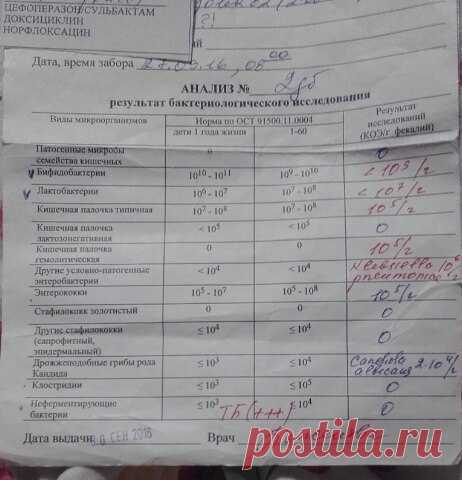 ЦЕФОПЕРАЗОН/СУЛЬБАКТАМ
ДОКСИЦИКЛИН
НОРФЛОКСАЦИН
?!
Дата, время забора 27.09.16, 05 00
АНАЛИЗ № 2дб
результат бактериологического исследования
Виды микроорганизмов Норма по ОСТ 91500.11.0004 Результат исследований (КОЭ/г фекалий)
дети 1 года жизни 1-60
Патогенные микробы семейства кишечных 0 0
Бифидобактерии 10¹⁰ - 10¹¹ 10⁹ - 10¹⁰ < 10⁹/г
Лактобактерии 10⁶ - 10⁷ 10⁷ - 10⁸ < 10⁷/г
Кишечная палочка типичная 10⁷ - 10⁸ 10⁷ - 10⁸ 10⁵/г
Кишечная палочка лактозонегативная < 10⁵ < 10⁵ 0
Кишечная палочка гемолитическая 0 0 10⁵/г
Другие условно-патогенные энтеробактерии < 10⁴ < 10⁴ Klebsiella pneumoniae 10⁶
Энтерококки 10⁵ - 10⁷ 10⁵ - 10⁸ 10⁵/г
Стафилококк золотистый 0 0 0
Другие стафилококки (сапрофитный, эпидермальный) ≤ 10⁴ ≤ 10⁴ 0
Дрожжеподобные грибы рода Кандида ≤ 10³ ≤ 10⁴ Candida albicans 2·10⁴/г
Клостридии ≤ 10³ ≤ 10⁵ 0
Неферментирующие бактерии ≤ 10³ ≤ 10⁴ 0
ТБ (++)
Дата выдачи 30 СЕН 2016 Врач
postila.ru